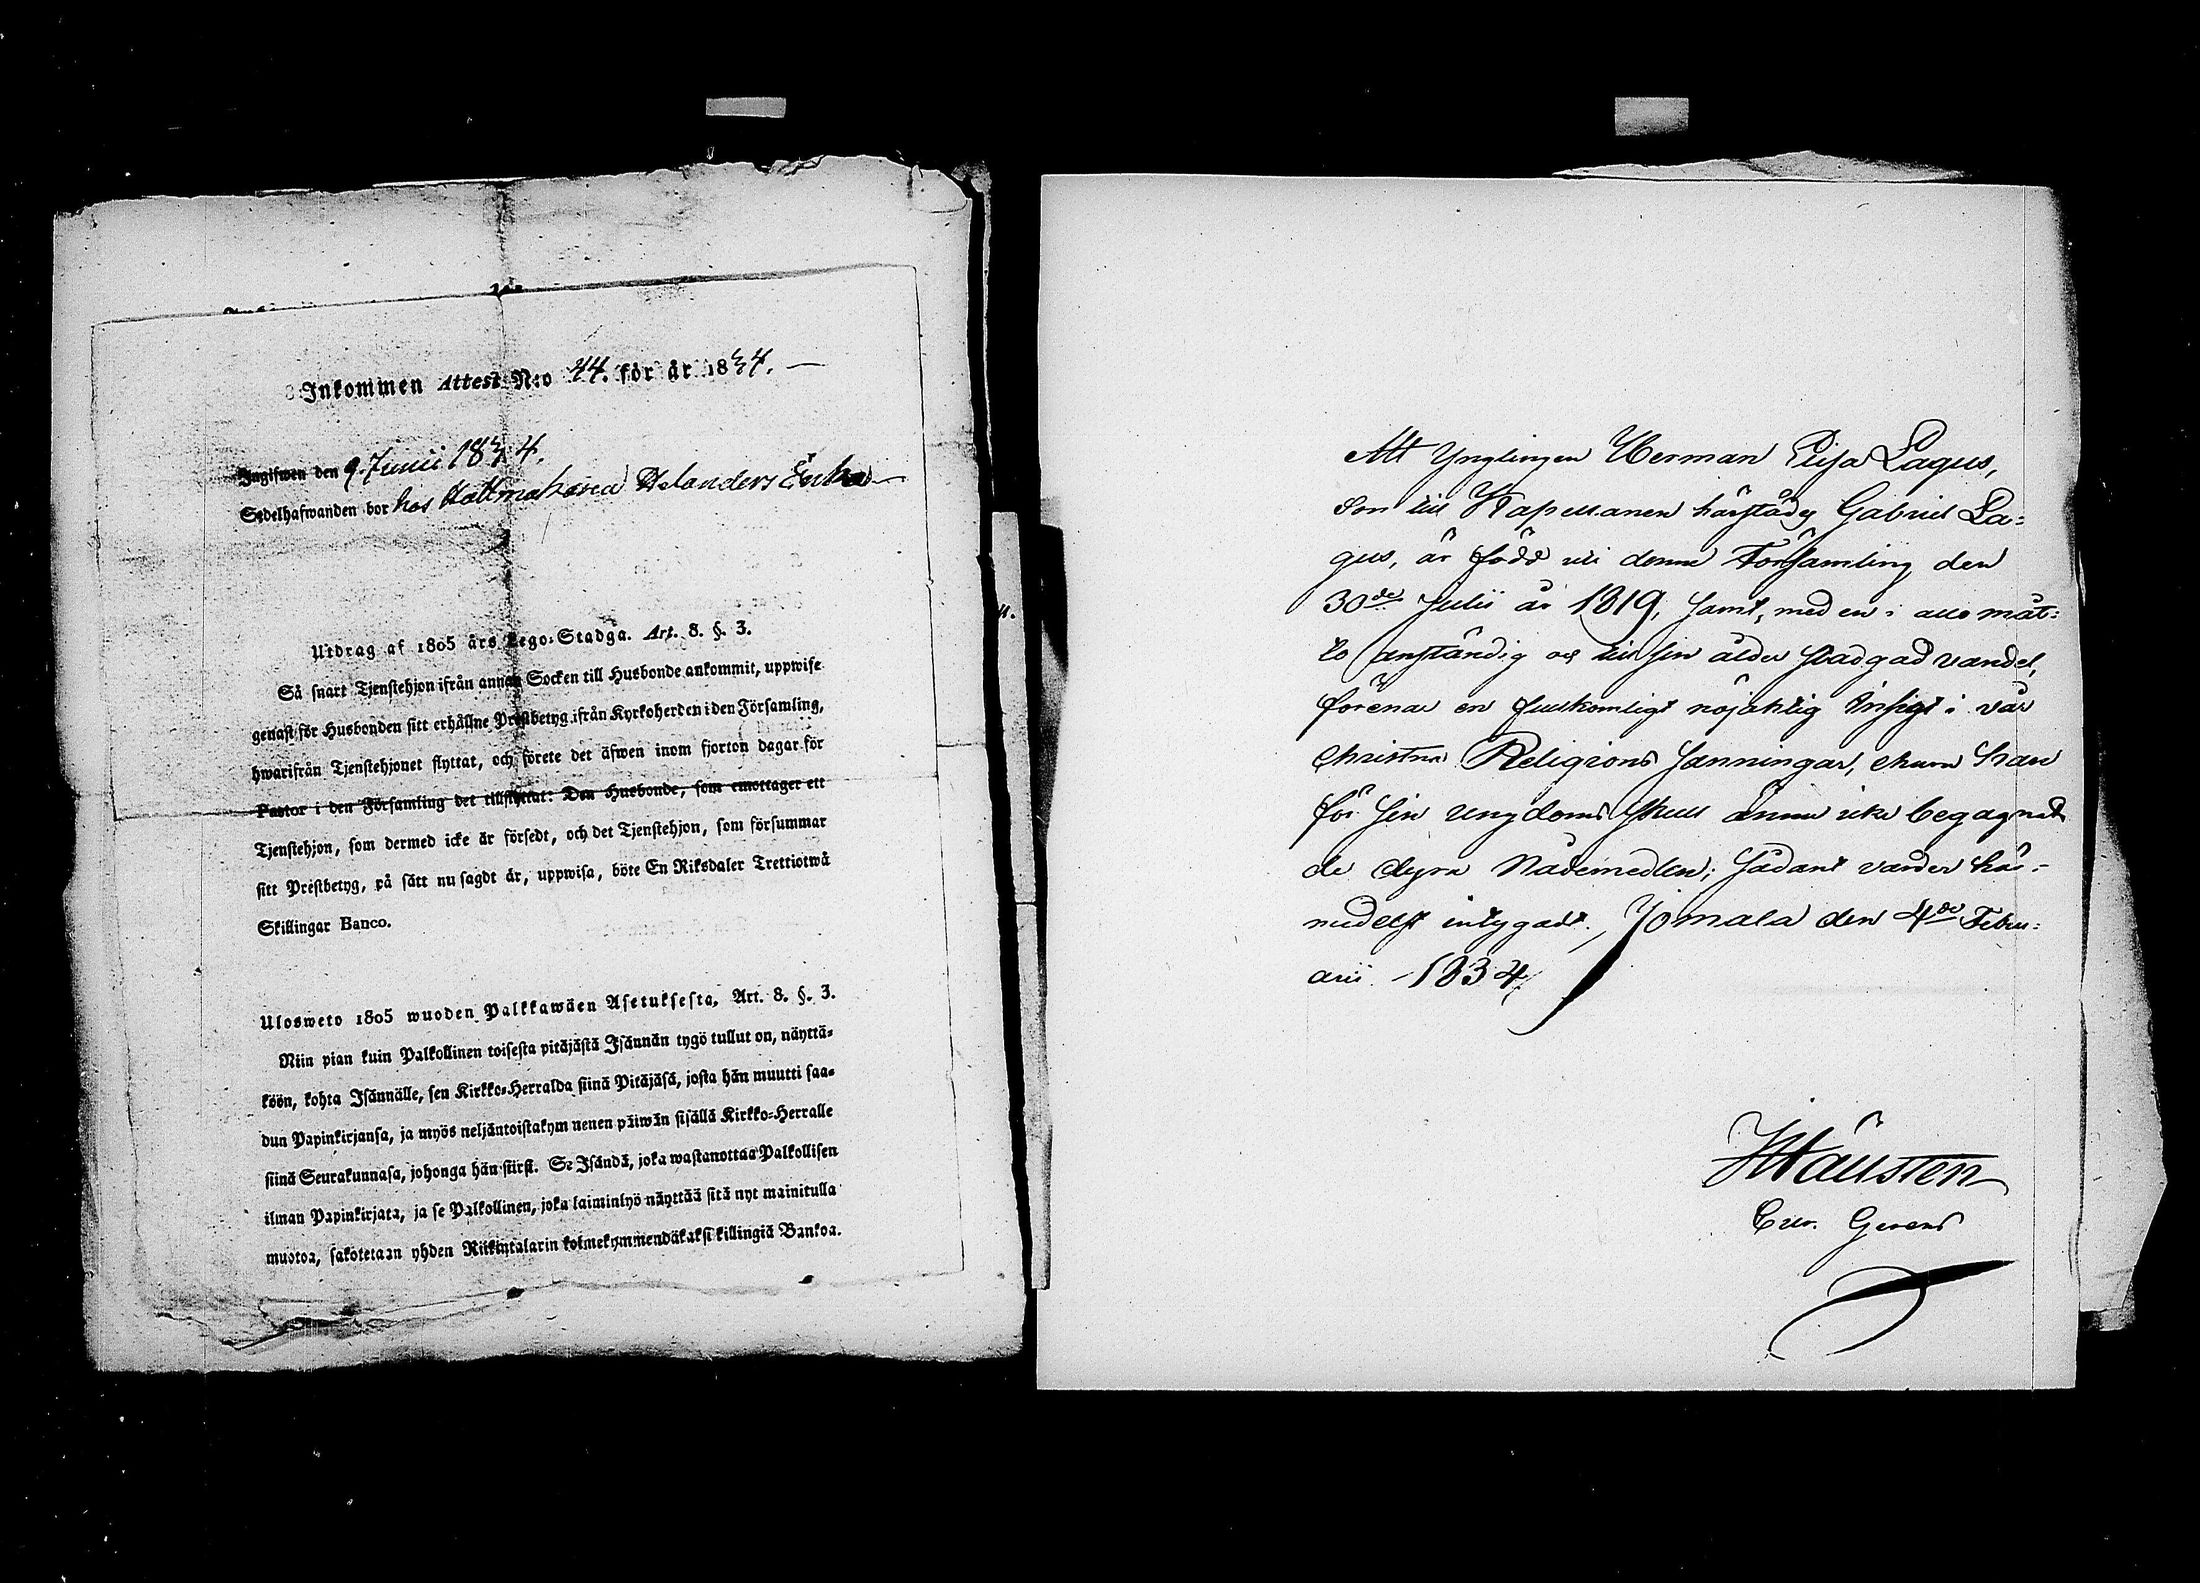 Inkommen Attest N:o 44. för år 1834.
Ingifwen den 9. Junii 1834.
Sedelhafwanden bor hos Hattmakarea Helanders Enka
Utdrag af 1805 års Lego-Stadga. Art. 8. §. 3.
Så snart Tjenstehjon ifrån annan Socken till Husbonde ankommit, uppwise
genast för Husbonden sitt erhållne Prestbetyg ifrån Kyrkoherden i den Församling,
hwarifrån Tjenstehjonet flyttat, och förete det äfwen inom fjorton dagar för
Pastor i den Församling det tillflyttat: Den Husbonde, som emottager ett
Tjenstehjon, som dermed icke är försedt, och det Tjenstehjon, som försummar
sitt Prestbetyg, på sätt nu sagdt är, uppwisa, böte En Riksdaler Trettiotwå
Skillingar Banco.
Ulosweto 1805 wuoden Palkkawäen Asetuksesta, Art. 8. §. 3.
Niin pian kuin Palkollinen toisesta pitäjästä Isännän tygö tullut on, näyttä-
köön, kohta Isännälle, sen Kirkko-Herralda siinä Pitäjäsä, josta hän muutti saa-
dun Papinkirjansa, ja myös neljäntoistakym nenen päiwän sisällä Kirkko-Herralle
siinä Seurakunnasa, johonga hän siirst. Se Isändä, joka wastanottaa Palkollisen
ilman Papinkirjata, ja se Palkollinen, joka laiminlyö näyttää sitä nyt mainitulla
muotoa, sakotetaan yhden Riikintalarin kolmekymmendäkaksi killingiä Bankoa.
Att Ynglingen Herman Lagus,
Son till Kapellanen härstädes Gabriel La-
gus, är född uti denna Församling den
30de Julii år 1819, samt, med en i alla måt-
to anständig och till sin ålder stadgad vandel,
förenar en fullkomligt nöjaktig Insigt i vår
Christna Religions Sanningar, ehuru han
för sin ungdoms skull ännu icke begagnat
de dyra Nådemedlen; sådant varder här-
medelst intygadt. Jomala den 4de Febru-
arii 1834
Haüsten
Cur. Gerens